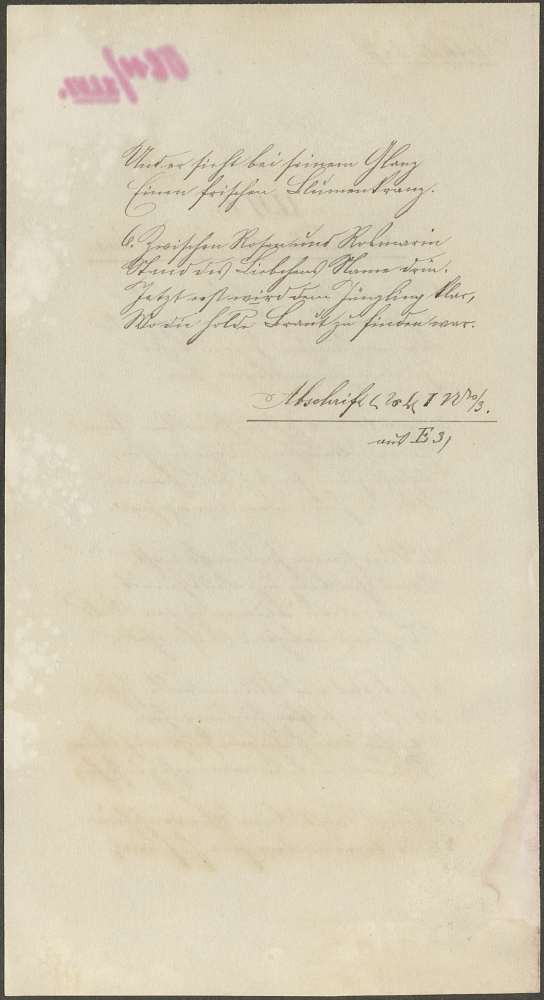 Und er sieht bei seinem Glanz
Einen frischen Blumenkranz.
6. Zwischen Rosen und Rosmarin
Stand des Liebchens Name drin.
Jetzt erst wird dem Jüngling klar,
Wo die holde Braut zu finden war.
Abschrift
aus E 3)